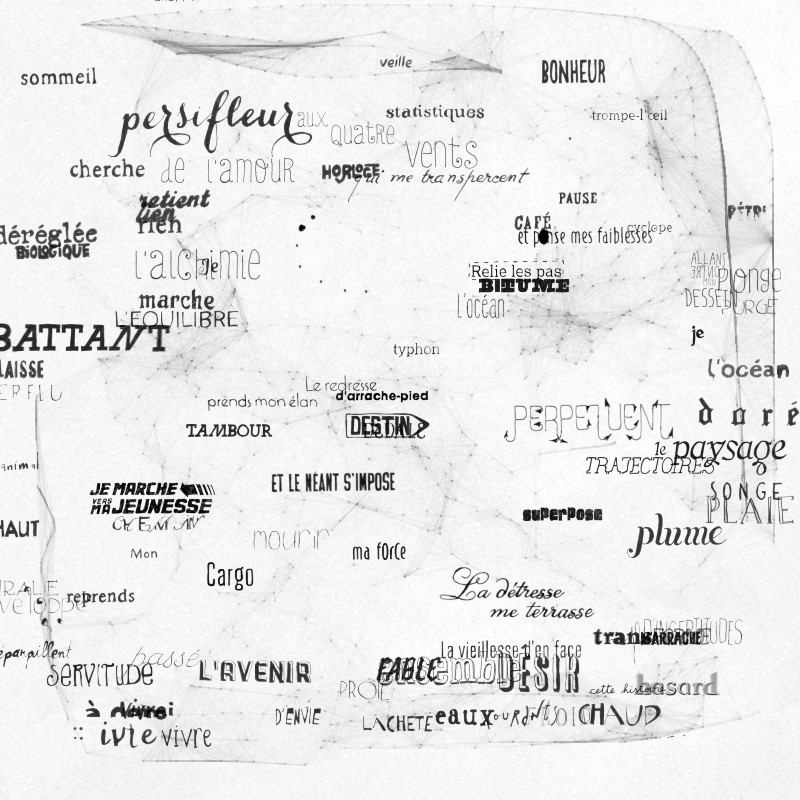 sommeil
veille
BONHEUR
persifleur
aux
statistiques
trompe-l'œil
quatre
vents
cherche
de l'amour
HORLOGE
qui me transpercent
retient
lien
rien
PAUSE
PÉTRI
CAFÉ
cyclope
et panse mes faiblesses
déréglée
BIOLOGIQUE
l'alchimie
Je
Relie les pas
BITUME
ALLANT
Plonge
DESSER
PURGE
marche
l'océan
L'ÉQUILIBRE
BATTANT
je
typhon
LAISSE
l'océan
ERFLU
Le redresse
prends mon élan
d'arrache-pied
TAMBOUR
DESTIN
PERPÉTUENT
doré
le paysage
TRAJECTOIRES
animal
ET LE NÉANT S'IMPOSE
JE MARCHE
VERS
MA JEUNESSE
SONGE
PLAIE
superpose
HAUT
plume
mourir
ma force
Mon
Cargo
reprends
La détresse
me terrasse
éparpillent
passé
transe
La vieillesse d'en face
SERVITUDE
L'AVENIR
FABLE
ensemble
DÉSIR
PROIE
cette histoire
hasard
à
D'ENVIE
LÂCHETÉ
eaux
CHAUD
ivre
vivre